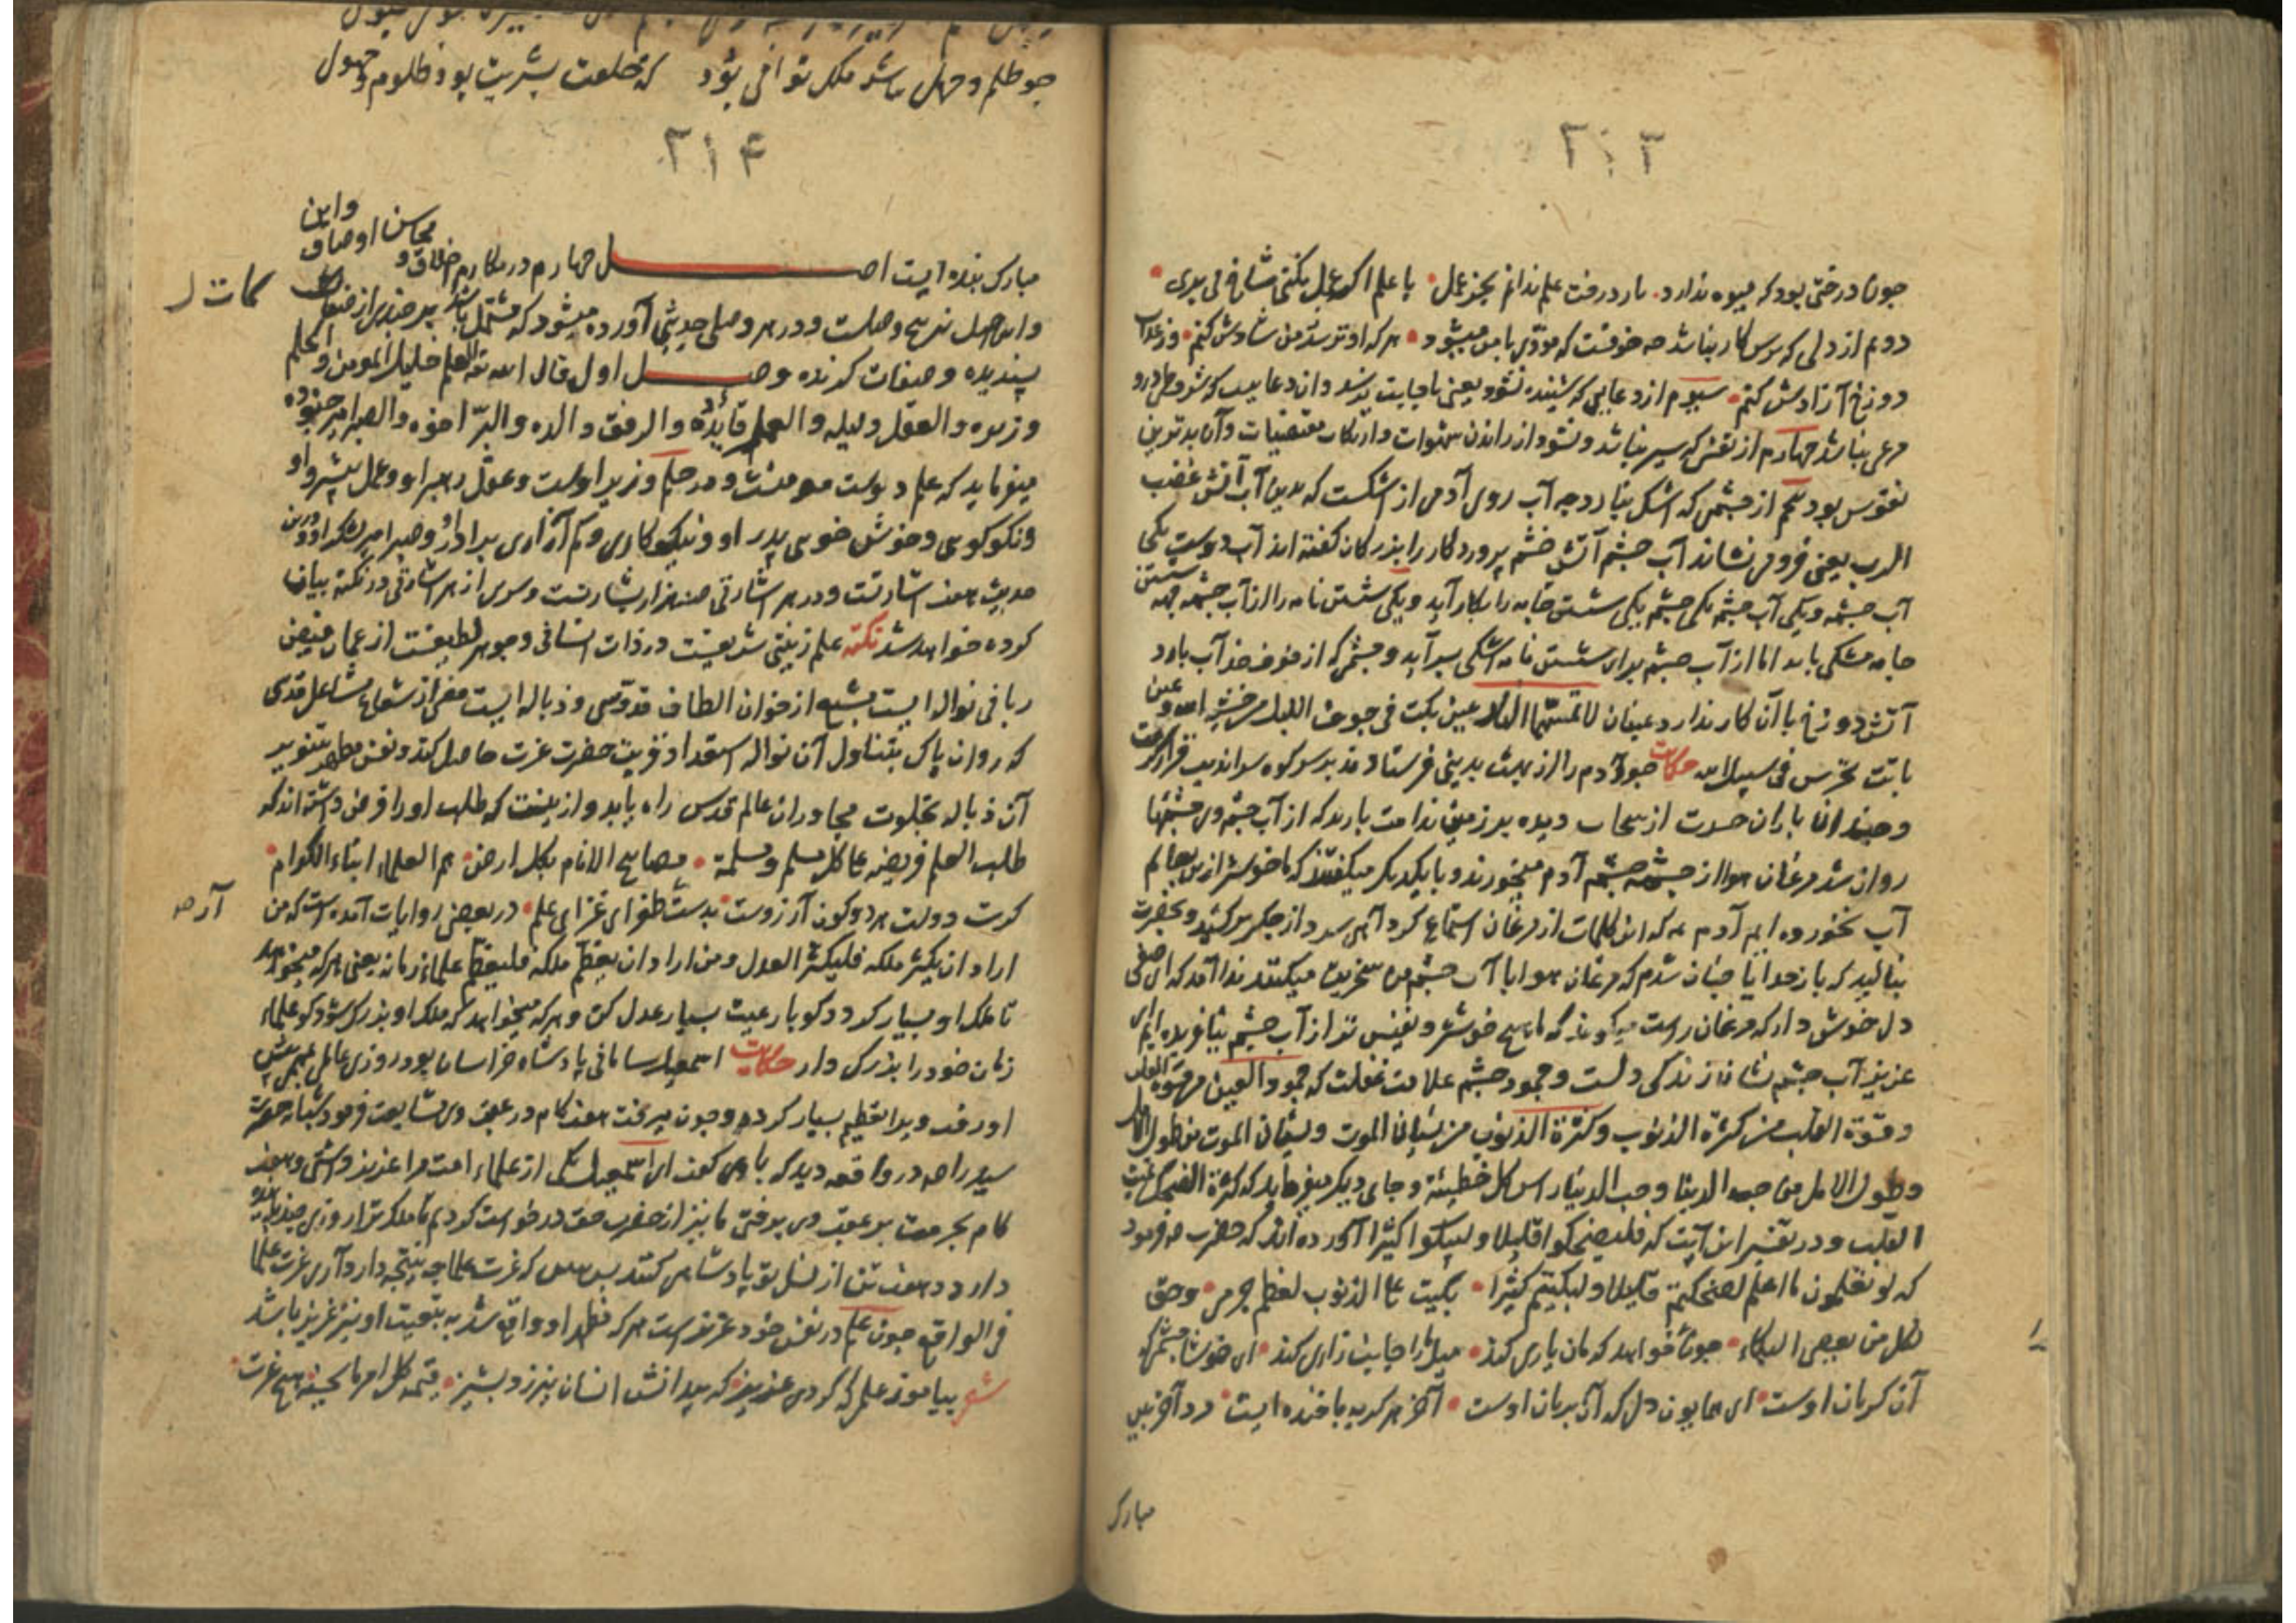 ۲۱۳
چون درختی بود که میوه ندارد بار درخت علم ندانم بجز عمل با علم اگر عمل نکنی شاخ بی بری
دوم از دلی که ترس کار نباشد چه خوفست که مودی با من میشود هر که او ترسد من شادش کنم وز عذاب
دوزخ آزادش کنم سیوم از دعایی که شنیده نشود یعنی باجابت نرسد وان دعاییست که شروط درو
مرعی نباشد چهارم از نفسی که سیر نباشد ونشود از راندن شهوات وارتکاب مقتضیات وآن بدترین
نفوس بود پنجم از چشمی که اشک نبارد چه آب روی آدمی از اشکست که بدین آب آتش غضب
الرب یعنی فرو می نشاند آب چشم آتش خشم پروردگار را بزرکان کفته اند آب دوست یکی
آب چشمه ویکی آب چشم یکی شستن جامه را بکار آید ویکی شستن نامه را از آب چشمه جهه شستن
جامه مشکی باید اما از آب چشم برای شستن نامه اشکی بسر آید وچشمی که از خوف خدا آب بارد
آتش دوزخ با آن کار ندارد عینان لا تمسهما النار عین بکت فی جوف اللیل من خشیة الله وعین
باتت تحرس فی سبیل الله حکایت چون آدم را از بهشت بدنیی فرستادند بر سر کوه سراندیب قرار گرفت
وچندان باران حسرت از سحاب دیده بر زمین ندامت بارید که از آب چشم وی چشمها
روان شد مرغان هوا از چشمه چشم آدم میخوردند وبا یکدیکر میکفتند که ما خوشتر ازین بعالم
آب نخورده ایم آدم ع که این کلمات از مرغان استماع کرد آهی سرد از جکر برکشید وبحضرت
بنالید که بار خدایا چنان شدم که مرغان هوا با آب چشم من سخریت میکنند ندا آمد که ای صفی
دل خوش دار که مرغان راست میکویند که ما هیچ خوشتر ونفیس تر از آب چشم نیافریده ایم ای
عزیز آب چشم نشان زندکی دلست وجمود چشم علامت غفلت که جمود العین من قسوة القلب
وقسوة القلب من کثرة الذنوب وکثرة الذنوب من نسیان الموت ونسیان الموت من طول الامل
وطول الامل من حب الدنیا وحب الدنیا راس کل خطیئة وجای دیکر میفرماید که کثرة الضحک تمیت
القلب ودر تفسیر این آیت که فلیضحکوا قلیلا ولیبکوا کثیرا آورده اند که حضرت ص فرمود
که لو تعلمون ما اعلم لضحکتم قلیلا ولبکیتم کثیرا بکیت علی الذنوب لعظم جرمی وحق
لکل من یعصی البکاء چون خواهد که مان یاری کند میل ما را جانب زاری کند ای خوشا چشمی که
آن کریان اوست ای همایون دل که آن بریان اوست آخر هر کریه با خنده ایست مرد آخر بین
مبارک
چو ظلم وجهل باشد ملک توافی بود که خلعت بشریت بود ظلوم وجهول
۲۱۴
مبارک بنده ایست اصل چهارم در مکارم اخلاق و محاسن اوصاف واین
واین اصل وصلست ودر هر وصلی حدیثی آورده میشود که مشتمل باشد بر چندین از
پسندیده وصفات کزیده وصل اول قال العلم خلیل المومن والحلم
وزیره والعقل دلیله والعمل قایده والرفق والده والبر اخوه والصبر امیر جنوده
میفرماید که علم دوست مومنست وحلم وزیر اوست وعقل رهبر او وعمل پیشرو او
ونکوکویی وخوش خویی پدر او ونیکوکاری وکم آزاری برادر او وصبر امیر لشکر او ودرین
حدیث هفت اشارتست ودر هر اشارتی صد هزار بشارتست وسری از هر اشارتی در نکته بیان
کرده خواهد شد نکته علم زینتی شریفست در ذات انسانی وجوهر لطیفست از عمان فیض
ربانی نواله ایست مشبع از خوان الطاف قدوسی وذباله ایست از شعاع مشاعل قدسی
که روان پاک بتناول آن نواله استعداد قربت حضرت عزت حاصل کند ونفس مطهر بتنویر
آن ذباله بخلوت مجاوران عالم قدس راه یابد وازینست که طلب او را فرض داشته اند که
طلب العلم فریضة علی کل مسلم ومسلمة مصابیح الانام بکل ارض هم العلماء ابناء الکرام
کرت دولت هر دو کون آرزوست بدست طغرای غرای علم در بعضی روایات آمده است که من
اراد ان یکثر ملکه فلیکثر العدل ومن اراد ان یعظم ملکه فلیعظم علماء زمانه یعنی هر که میخواهد
تا ملک او بسیار کردد کو با رعیت بسیار عدل کن وهر که میخواهد که ملک او بزرک شود کو علماء
زمان خود را بزرک دار حکایت اسمعیل سامانی پادشاه خراسان بود روزی عالمی پیش
او رفت ویرا تعظیم بسیار کرد وچون میرفت هفت کام در عقب وی مشایعت فرمود شبانه حضرت
سید را ص در واقعه دید که با وی کفت ای اسمعیل یکی از علماء امت مرا عزیز داشتی وهفت
کام بحرمت بر عقب وی برفتی ما نیز از حضرت حق درخواست کردیم تا ملک ترا روزی چند
دارد وهفت تن از نسل تو پادشاهی کنند پس ببین که عزت علما چه نتیجه دارد آری عزت علما
فی الواقع چون علم در نفس خود عزیزست هر که مظهر او واقع شد به تبعیت او نیز عزیز باشد
شعر بیاموز علمی که کردی عزیز که بیدانش انسان نیرزد پشیز قیمة کل امرء ما یحسنه هیچ عزت